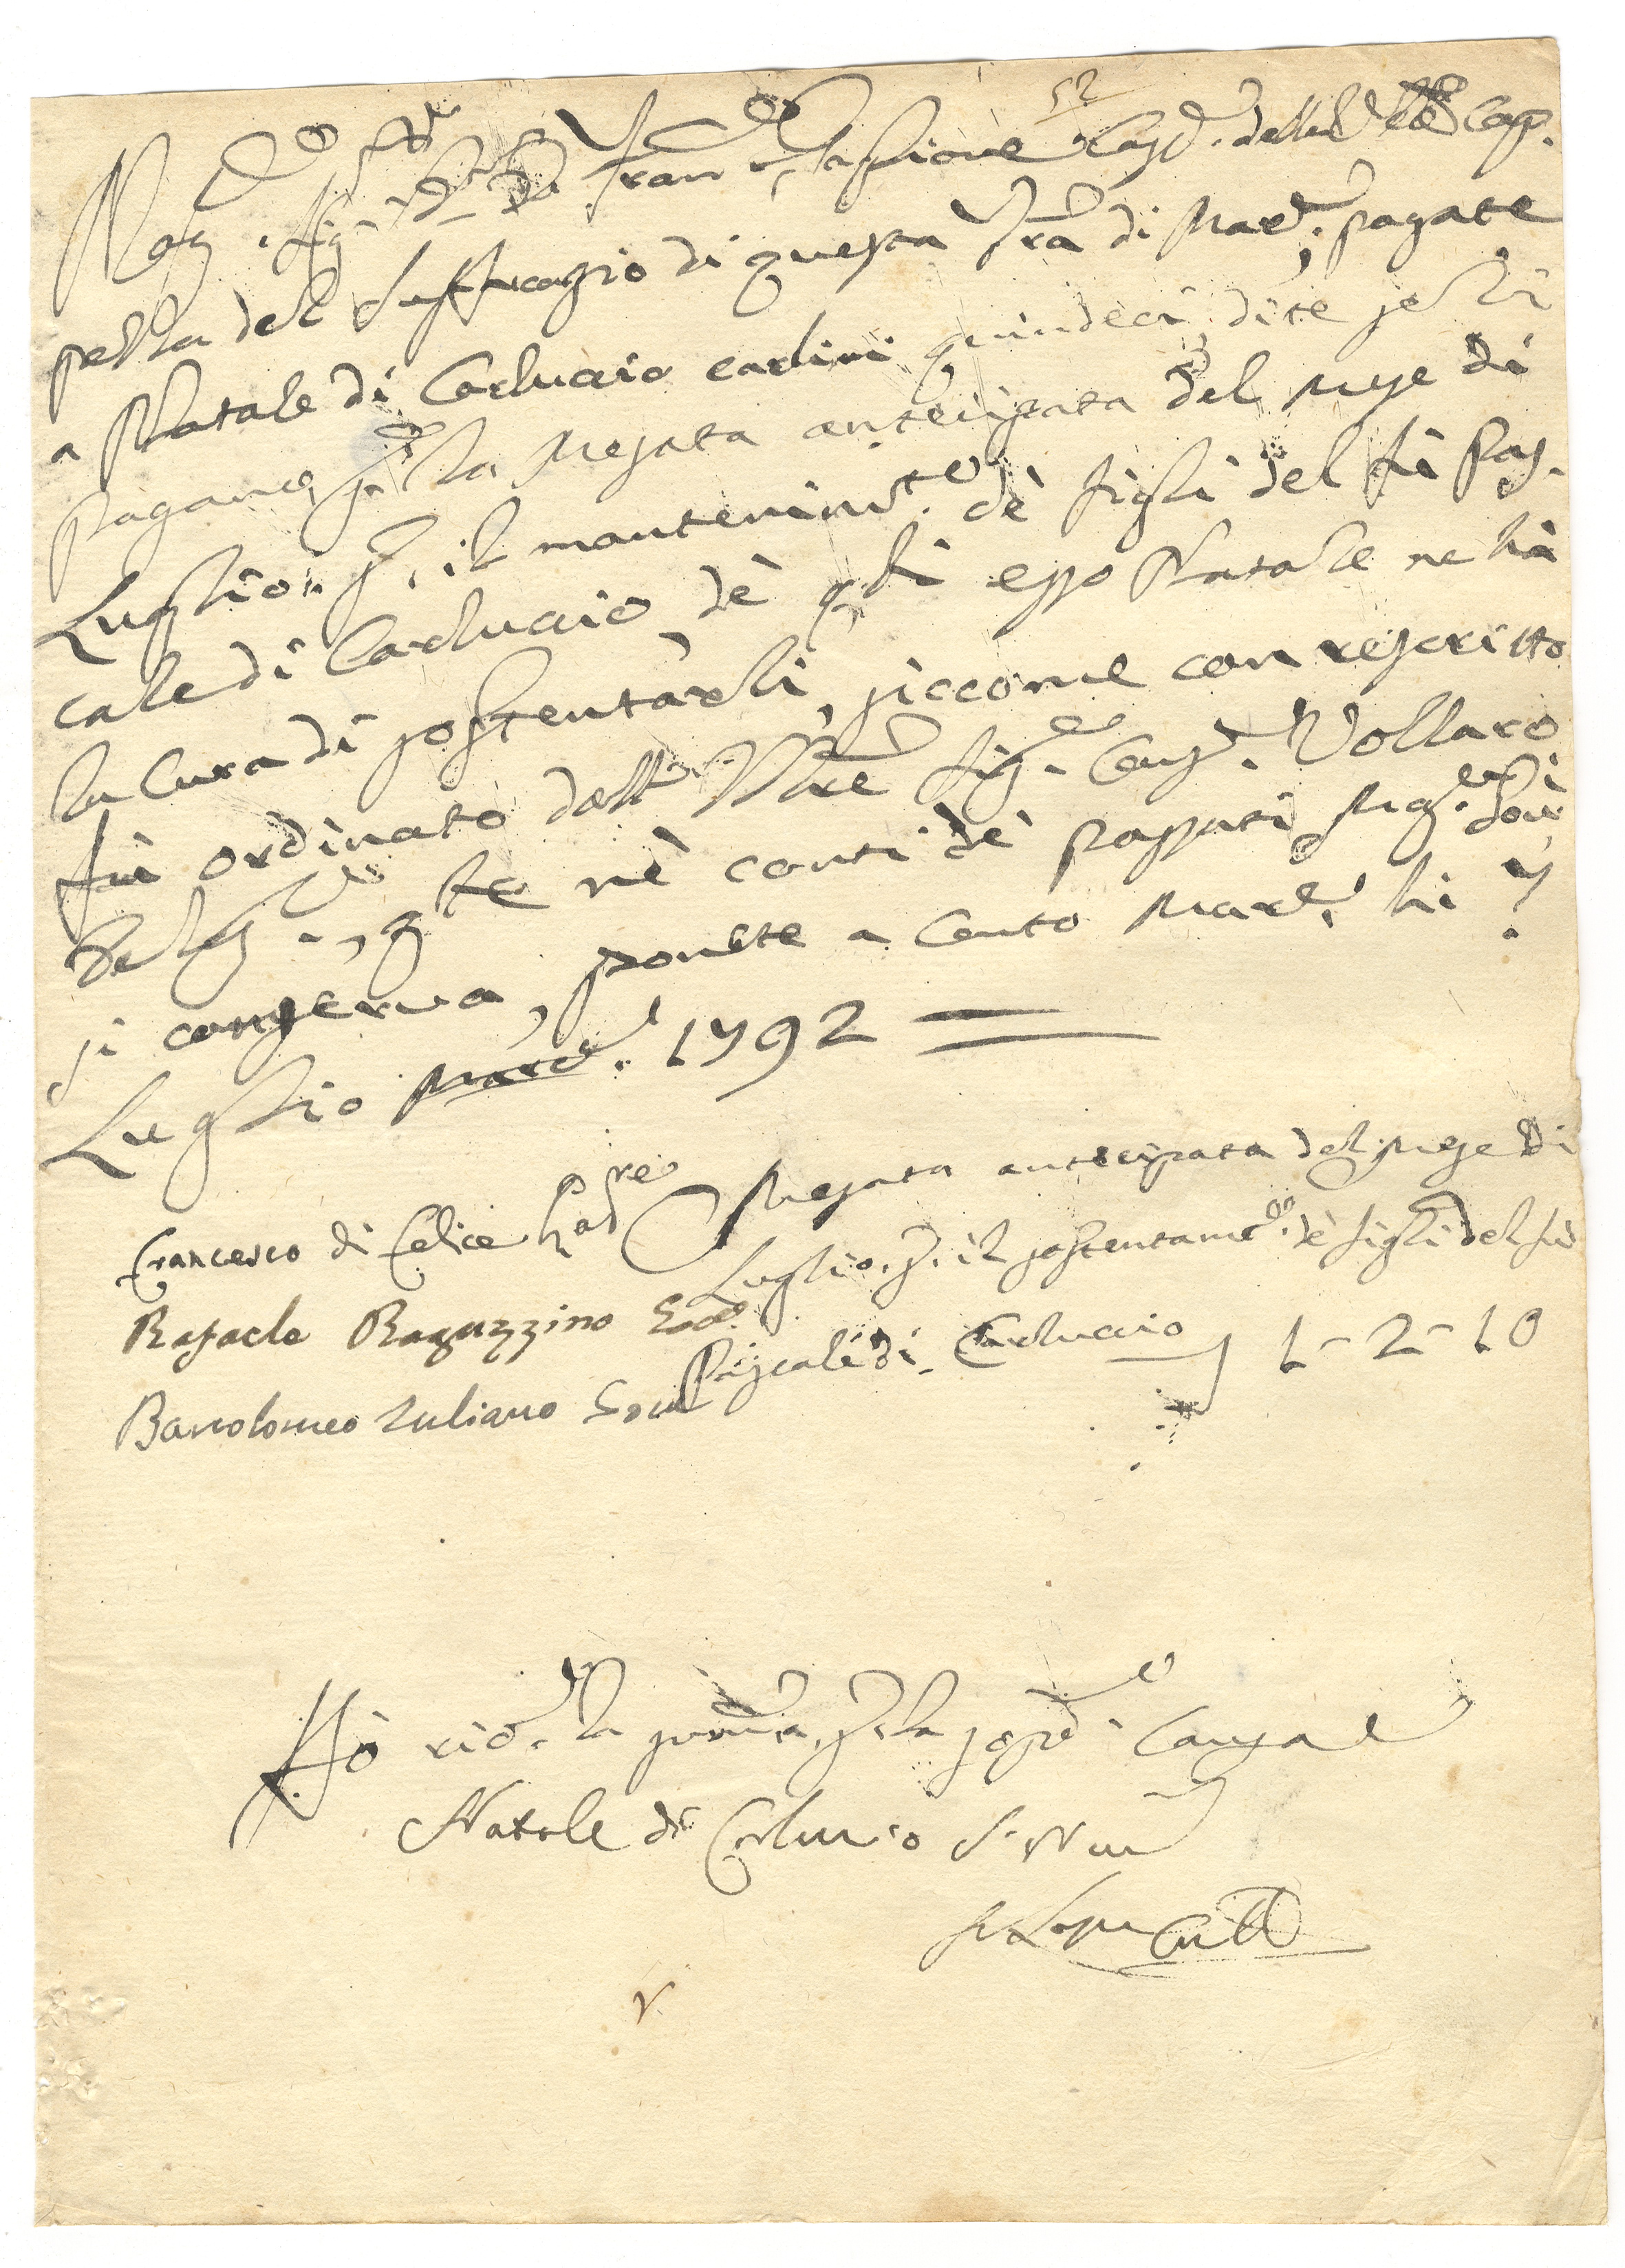 52
Mag.co Sig.r D. Fran.co Cas.e della Ve Cap.
pella del Suffragio di questa Tra di Mard.e, pagate
a Natale di Carluccio carlini quindeci, dite se li
pagano p. la mesata antecipata del mese di
Luglio: p. il mantenim.to dè figli del fù Pas.
cale di Carluccio, dè q.li esso Natale ne hà
la Cura di sostentarli, siccome con rescritto
fù ordinato dall' Ill.re Sig.e Cons.e Vollaro
Deleg.to, q.le nè conti dè passati Mag.e dove
si conserva, ponete a Conto Mard.e li 7
Luglio 1792
Francesco di Felice Padre
Rafaele Raguzzino Gov.
Bartolomeo Iuliano Gov.
Mesata antecipata del mese di
Luglio p. il sostentam.to dè figli del fù
Pascale di Carluccio 1-2-10
Hò ric. la somma p. la sop.a Causa
Natale di Carluccio